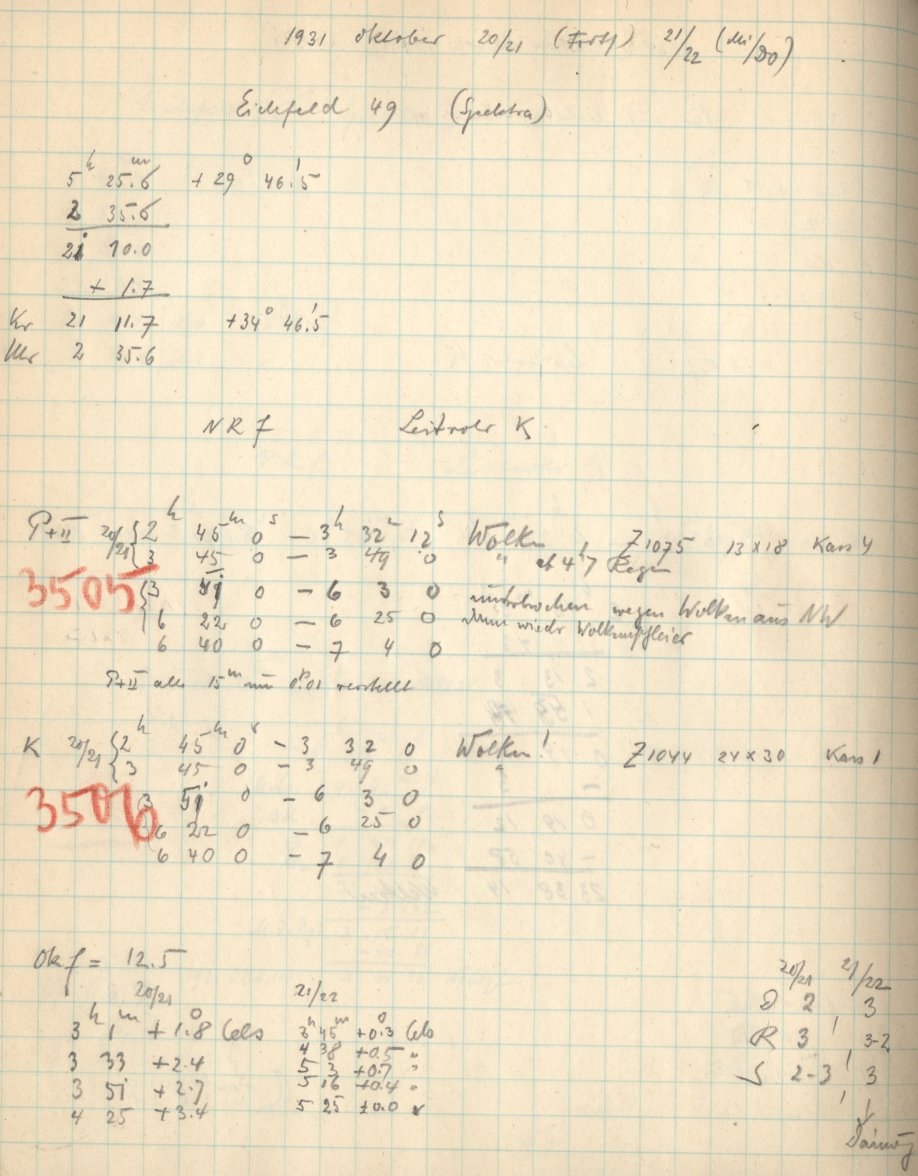 1931 Oktober 20/21 (Forts) 21/22 (Mi/Do)
Eichfeld 49 (Spektra)
5h 25.6m +29° 46.'5
2 35.6
21 10.0
+ 1.7
Kr 21 11.7 +34° 46.'5
Uhr 2 35.6
NR f Leitrohr K
P+II 20/21 { 2h 45m 0s — 3h 32m 12s Wolken Z1075 13x18 Kass 4
{ 3 45 0 — 3 49 0 " ab 4h7 Regen
3505 { 3 51 0 — 6 3 0 unterbrochen wegen Wolken aus NW
6 22 0 — 6 25 0 dann wieder Wolkenschleier
6 40 0 — 7 4 0
P+II alle 15m um 0.01 verstellt
K 20/21 { 2h 45m 0s — 3 32 0 Wolken! Z1044 24x30 Kass 1
{ 3 45 0 — 3 49 0 "
3506 3 51 0 — 6 3 0
6 22 0 — 6 25 0
6 40 0 — 7 4 0
Ok f = 12.5
20/21 21/22 20/21 21/22
3h 1m +1.8° Cels 3h 45m +0.3° Cels D 2 3
3 33 +2.4 4 38 +0.5 " R 3 3-2
3 51 +2.7 5 3 +0.7 " S 2-3 3
5 16 +0.4 "
4 25 +3.4 5 25 ±0.0 "